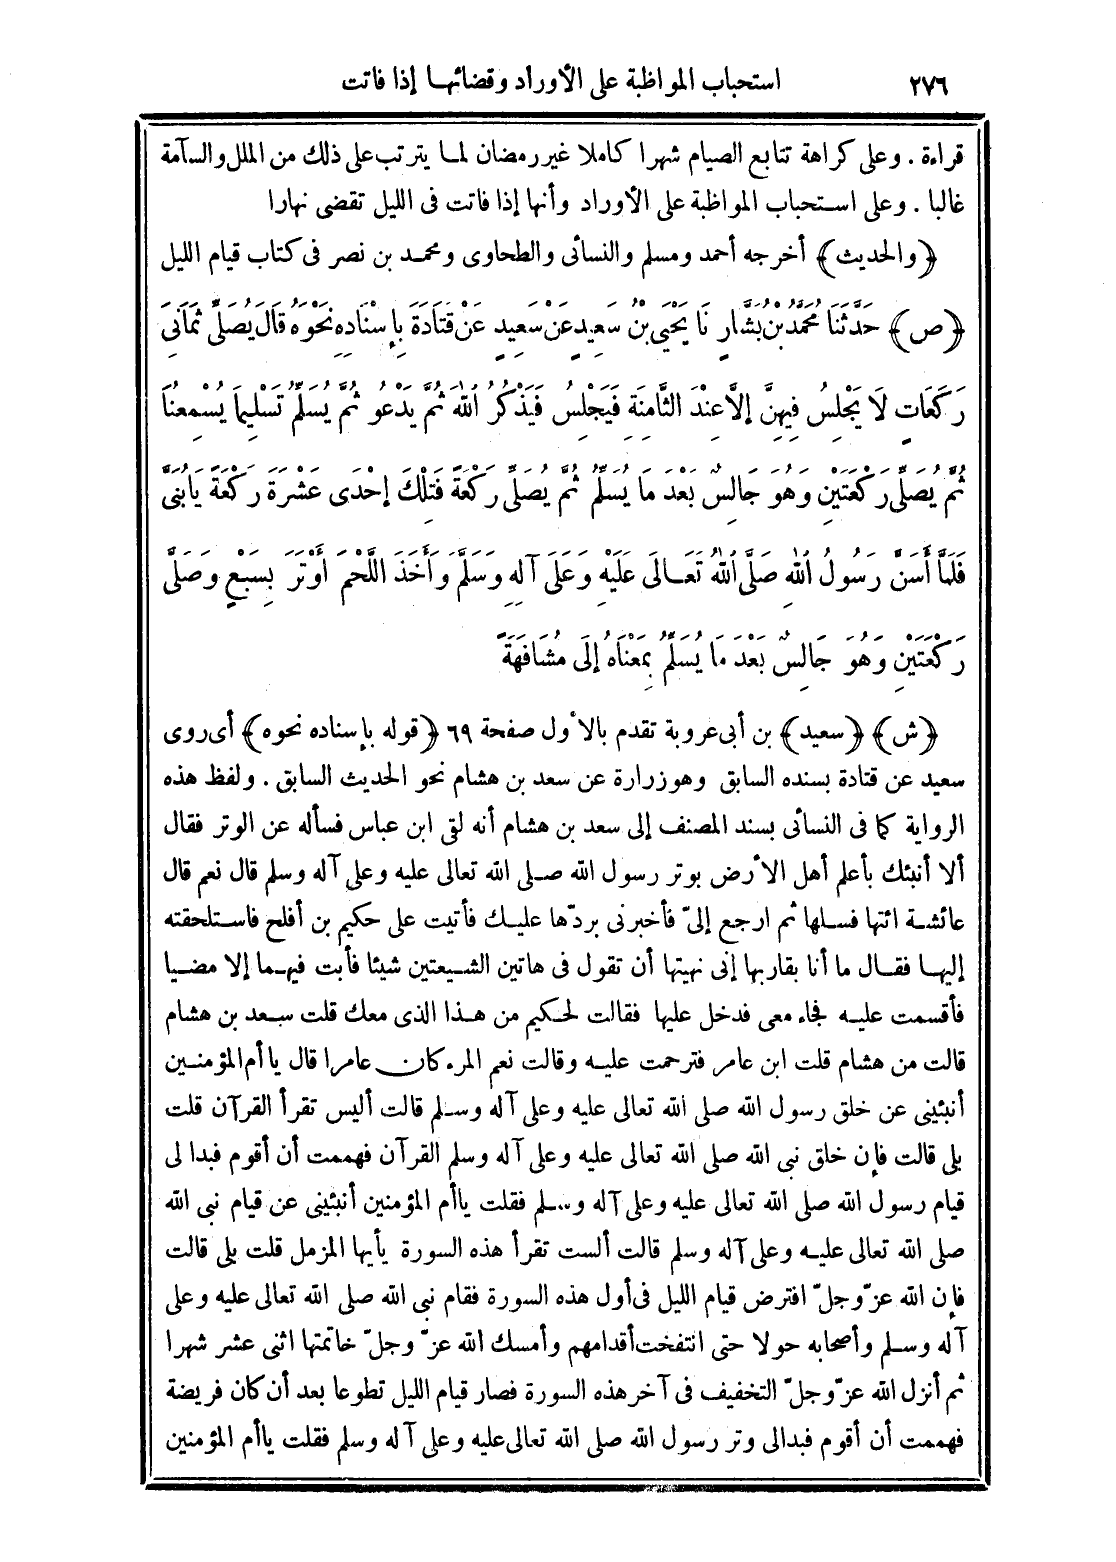 ٢٧٦ استحباب المواظبة على الأوراد وقضائها إذا فاتت
قراءة . وعلى كراهة تتابع الصيام شهرا كاملا غير رمضان لما يترتب على ذلك من الملل والسآمة
غالبا . وعلى استحباب المواظبة على الأوراد وأنها إذا فاتت فى الليل تقضى نهارا
﴿والحديث﴾ أخرجه أحمد ومسلم والنسائى والطحاوى ومحمد بن نصر فى كتاب قيام الليل
﴿ص﴾ حَدَّثَنَا مُحَمَّدُ بْنُ بَشَّارٍ نَا يَحْيَى بْنُ سَعِيدٍ عَنْ سَعِيدٍ عَنْ قَتَادَةَ بِإِسْنَادِهِ نَحْوَهُ قَالَ يُصَلِّى ثَمَانِىَ
رَكَعَاتٍ لَا يَجْلِسُ فِيهِنَّ إِلَّا عِنْدَ الثَّامِنَةِ فَيَجْلِسُ فَيَذْكُرُ اللهَ ثُمَّ يَدْعُو ثُمَّ يُسَلِّمُ تَسْلِيمًا يُسْمِعُنَا
ثُمَّ يُصَلِّى رَكْعَتَيْنِ وَهُوَ جَالِسٌ بَعْدَ مَا يُسَلِّمُ ثُمَّ يُصَلِّى رَكْعَةً فَتِلْكَ إِحْدَى عَشْرَةَ رَكْعَةً يَابُنَىَّ
فَلَمَّا أَسَنَّ رَسُولُ اللهِ صَلَّى اللهُ تَعَـالَى عَلَيْهِ وَعَلَى آلِهِ وَسَلَّمَ وَأَخَذَ اللَّحْمَ أَوْتَرَ بِسَبْعٍ وَصَلَّى
رَكْعَتَيْنِ وَهُوَ جَالِسٌ بَعْدَ مَا يُسَلِّمُ بِمَعْنَاهُ إِلَى مُشَافَهَةً
﴿ش﴾ ﴿سعيد﴾ بن أبى عروبة تقدم بالأول صفحة ٦٩ ﴿قوله بإسناده نحوه﴾ أى روى
سعيد عن قتادة بسنده السابق وهو زرارة عن سعد بن هشام نحو الحديث السابق . ولفظ هذه
الرواية كما فى النسائى بسند المصنف إلى سعد بن هشام أنه لقى ابن عباس فسأله عن الوتر فقال
ألا أنبئك بأعلم أهل الأرض بوتر رسول الله صلى الله تعالى عليه وعلى آله وسلم قال نعم قال
عائشة ائتها فسلها ثم ارجع إلىّ فأخبرنى بردّها عليك فأتيت على حكيم بن أفلح فاستلحقته
إليها فقال ما أنا بقاربها إنى نهيتها أن تقول فى هاتين الشيعتين شيئا فأبت فيهما إلا مضيا
فأقسمت عليه فجاء معى فدخل عليها فقالت لحكيم من هذا الذى معك قلت سعد بن هشام
قالت من هشام قلت ابن عامر فترحمت عليه وقالت نعم المرء كان عامرا قال ياأم المؤمنين
أنبئينى عن خلق رسول الله صلى الله تعالى عليه وعلى آله وسلم قالت أليس تقرأ القرآن قلت
بلى قالت فإن خلق نبى الله صلى الله تعالى عليه وعلى آله وسلم القرآن فهممت أن أقوم فبدا لى
قيام رسول الله صلى الله تعالى عليه وعلى آله وسلم فقلت ياأم المؤمنين أنبئينى عن قيام نبى الله
صلى الله تعالى عليه وعلى آله وسلم قالت ألست تقرأ هذه السورة يأيها المزمل قلت بلى قالت
فإن الله عزّ وجلّ افترض قيام الليل فى أول هذه السورة فقام نبى الله صلى الله تعالى عليه وعلى
آله وسلم وأصحابه حولا حتى انتفخت أقدامهم وأمسك الله عزّ وجلّ خاتمتها اثنى عشر شهرا
ثم أنزل الله عزّ وجلّ التخفيف فى آخر هذه السورة فصار قيام الليل تطوعا بعد أن كان فريضة
فهممت أن أقوم فبدالى وتر رسول الله صلى الله تعالى عليه وعلى آله وسلم فقلت ياأم المؤمنين